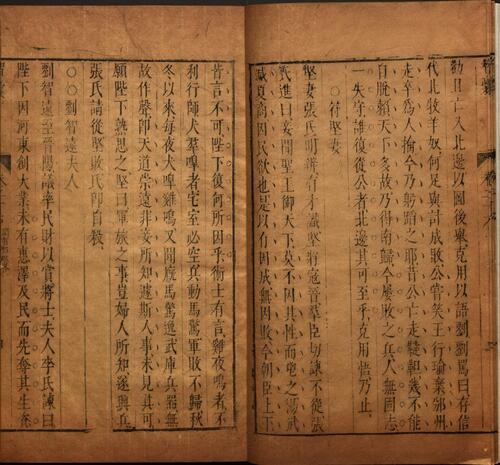 勸且亡入北邊以圖後舉克用以語劉劉罵曰存信
代北牧羊奴何足與計成敗公嘗笑王行瑜棄邠州
走卒爲人擒今乃躬蹈之耶昔公亡走韃靼幾不能
自脫賴天下多故乃得南歸今屢敗之兵人無固志
一失守誰復從公者北邊其可至乎克用悟乃止
○符堅妻
堅妻張氏明辨有才識堅將寇晉羣臣切諫不從張
氏進曰妾聞聖王御天下莫不因其性而鬯之湯武
滅夏商因民欲也是以有因成無因敗今朝臣上下
皆言不可陛下復何所因乎術士有言雞夜鳴者不
利行師犬羣嘷者宅室必空兵動馬驚軍敗不歸秋
冬以來每夜犬嘷雞鳴又聞廐馬驚逸武庫兵器無
故作聲即天道崇遠非妾所知遽斯人事未見其可
願陛下熟思之堅曰軍旅之事豈婦人所知遂興兵
張氏請從堅敗氏即自殺
○○劉智遠夫人
劉智遠至晉陽議率民財以賞將士夫人李氏諫曰
陛下因河東創大業未有惠澤及民而先奪其生